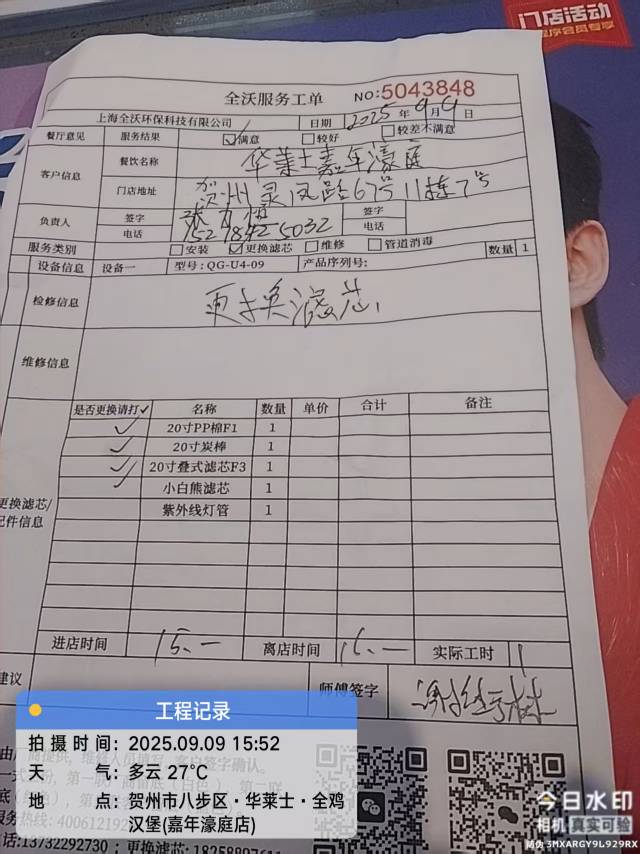 门店活动
程序会员专享
全沃服务工单 NO:5043848
上海全沃环保科技有限公司 日期 2025年9月9日
餐厅意见 服务结果 ☑满意 □较好 □较差不满意
客户信息 餐饮名称 华莱士嘉年濠庭
门店地址 贺州灵凤路67号11栋7号
负责人 签字 签字
电话 15278425032 电话
服务类别 □安装 ☑更换滤芯 □维修 □管道消毒 数量 1
设备信息 设备一 型号:QG-U4-09 产品序列号:
检修信息 更换滤芯
维修信息
是否更换请打✓ 名称 数量 单价 合计 备注
✓ 20寸PP棉F1 1
✓ 20寸炭棒 1
✓ 20寸叠式滤芯F3 1
✓ 小白熊滤芯 1
紫外线灯管 1
更换滤芯/
配件信息
进店时间 15:— 离店时间 16:— 实际工时 1
建议 师傅签字
工程记录
拍摄时间:2025.09.09 15:52
天气:多云 27°C
地点:贺州市八步区·华莱士·全鸡
汉堡(嘉年濠庭店)
今日水印
相机 真实可验
防伪 3MXARGY9L929RX